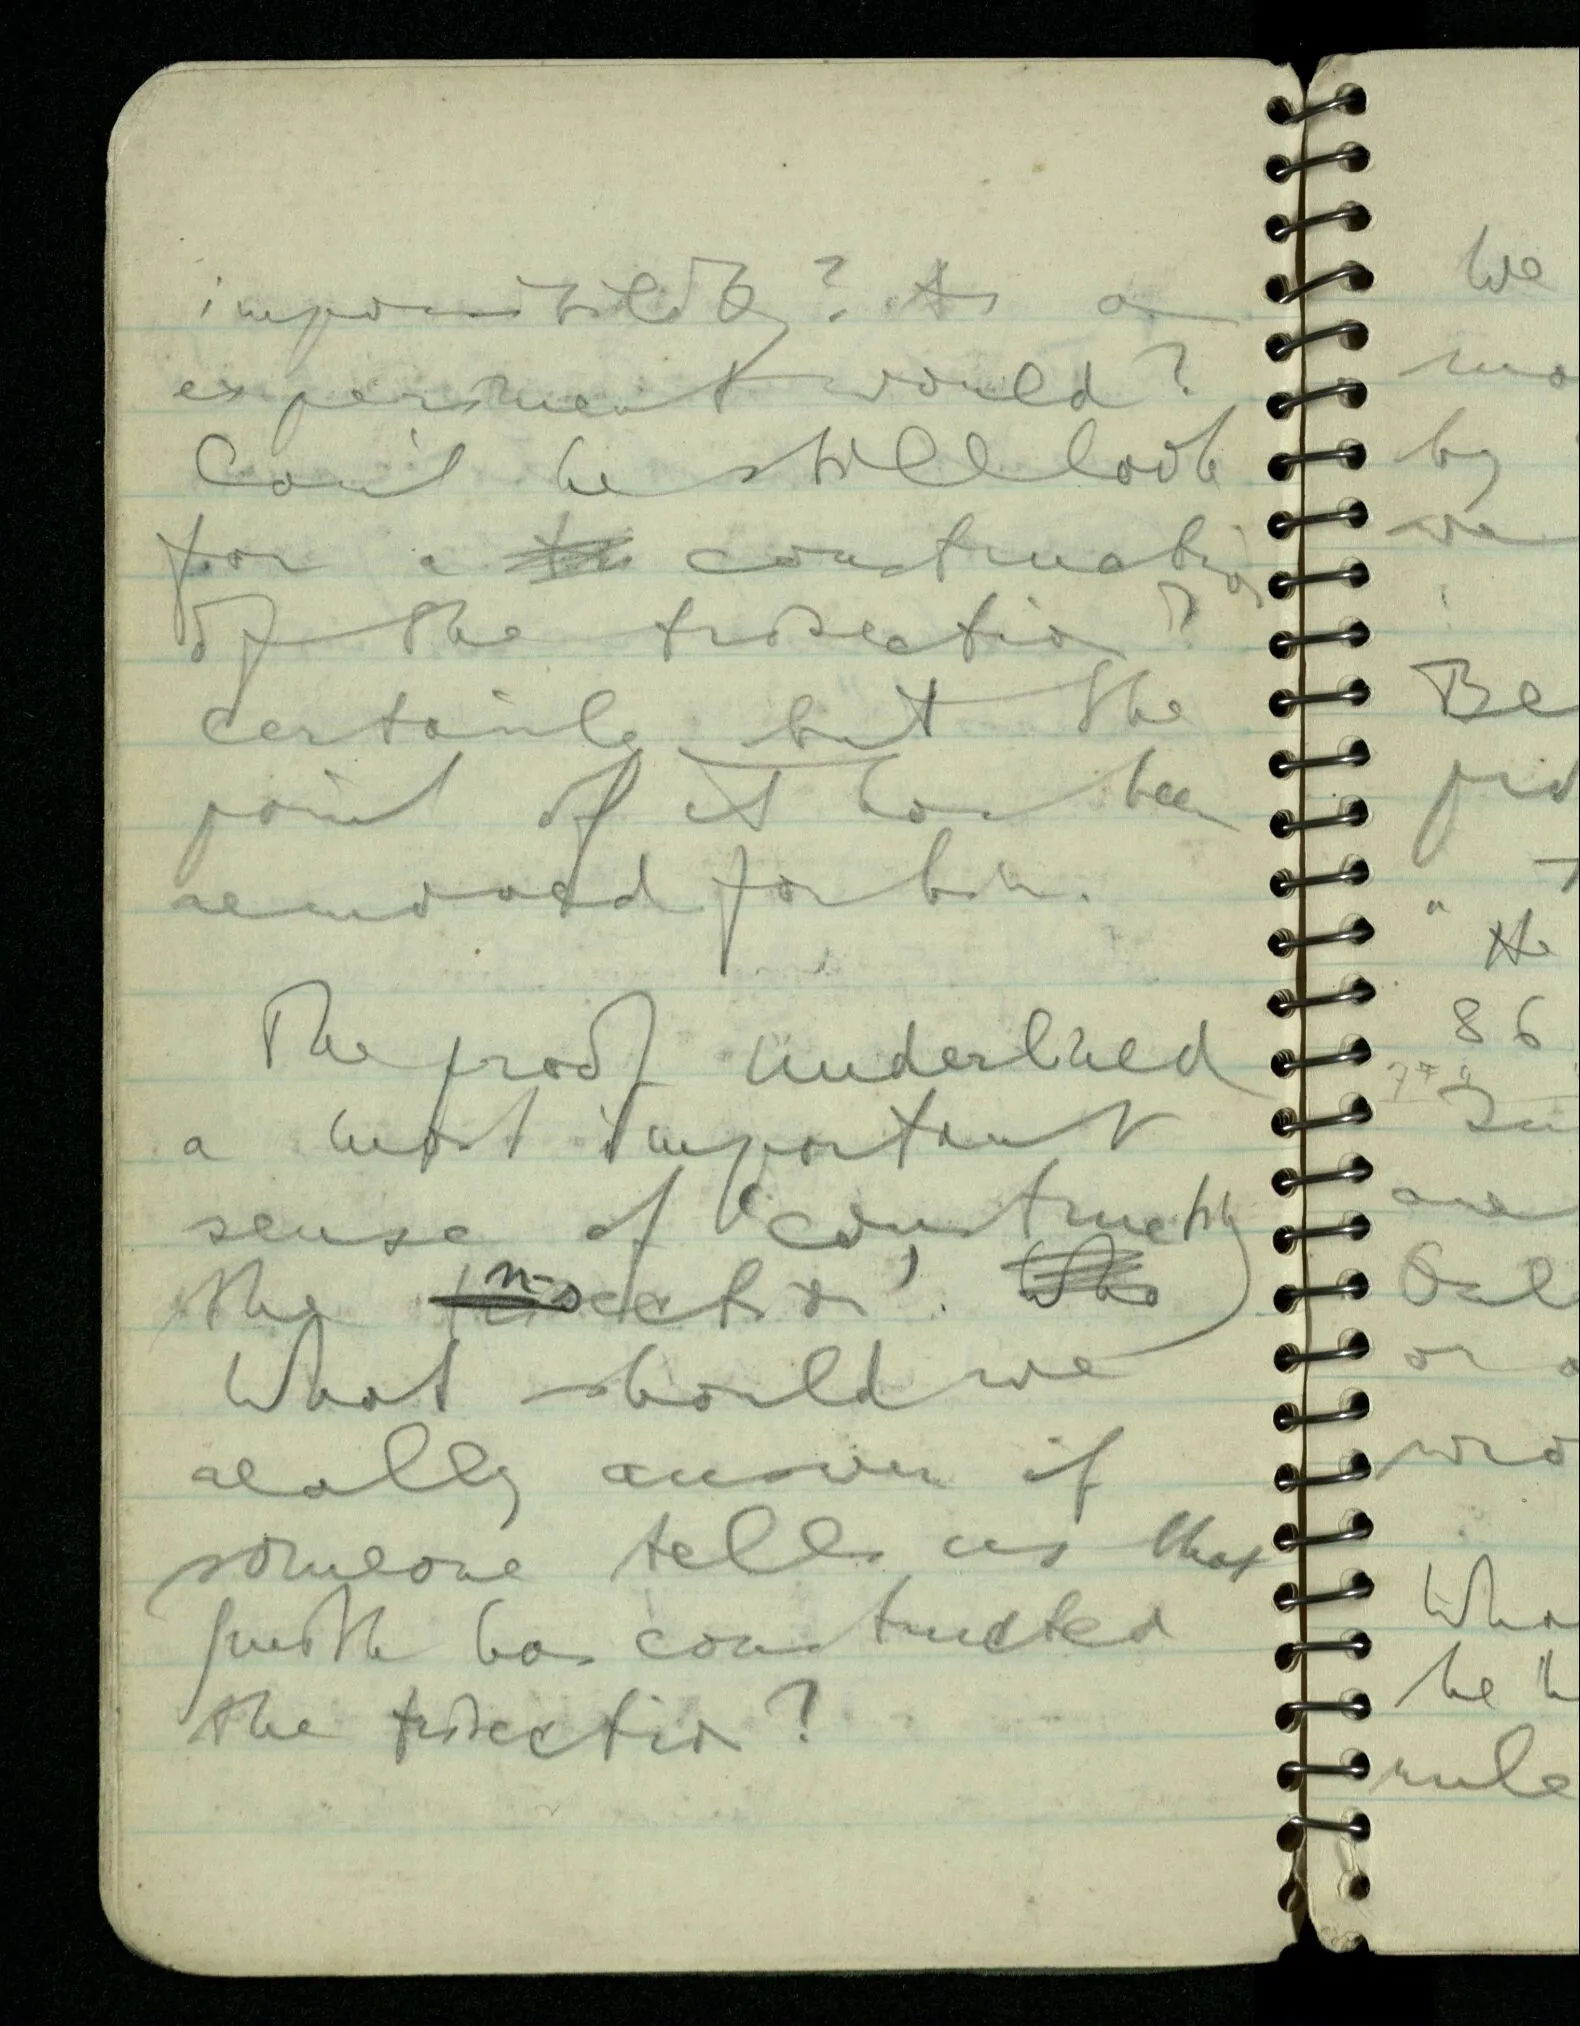 impossibility? As an
experiment would?
Can't he still look
for a construction
of the trisection?
Certainly but the
point of it has been
removed for him.
The proof underlined
a most important
sense of 'constructing
the n-section'. Who
What should we
really answer if
someone tells us that
Smith has constructed
the trisection?
We
by
we
Be
"
He
86
77 "
are
or
he
rule